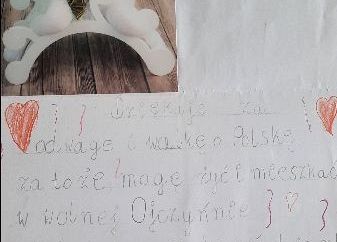 Dziękuję za
odwagę i walkę o Polskę
za to że mogę żyć i mieszkać
w wolnej Ojczyźnie